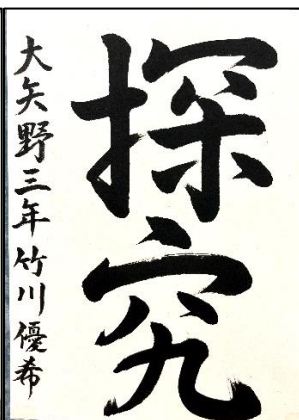 探究
大矢野三年竹川優希